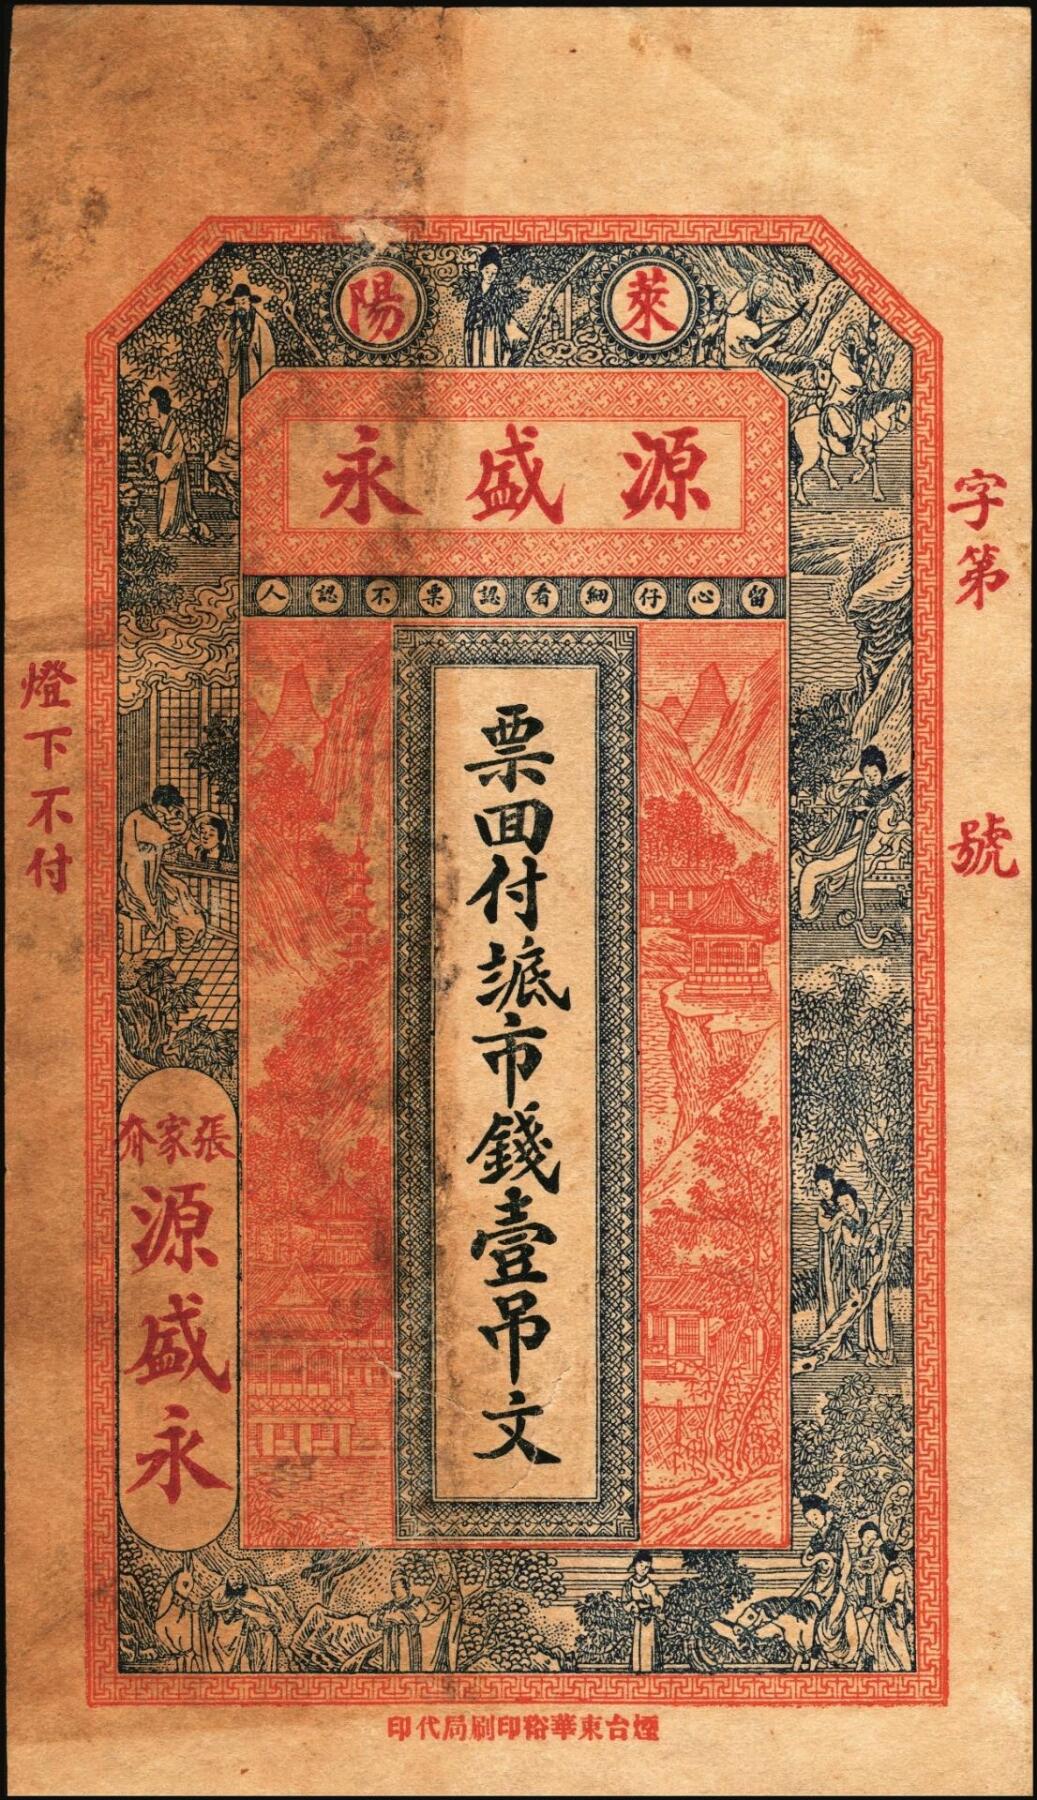 萊陽
源盛永
留心仔細看認票不認人
字第
號
票回付䟡市錢壹吊文
燈下不付
張家夼
源盛永
煙台東華裕印刷局代印